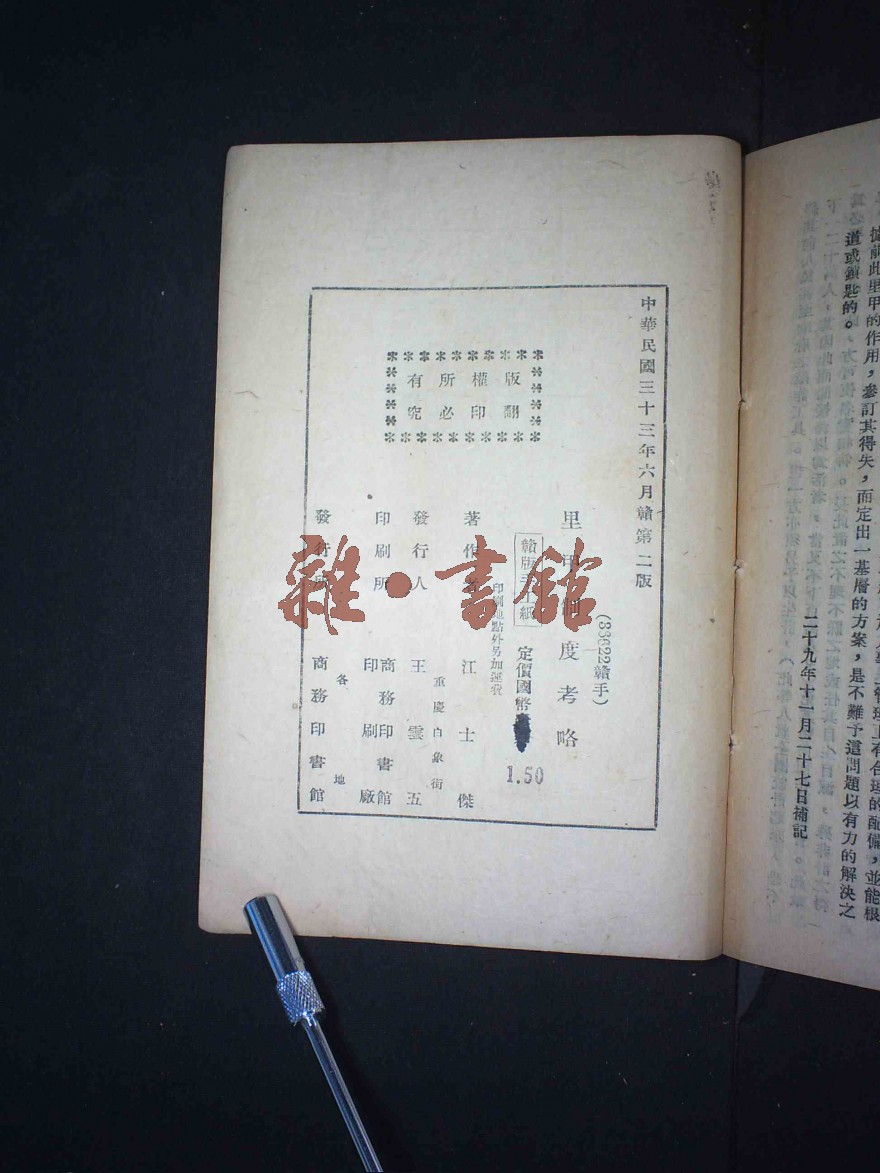 據前此里甲的作用，參訂其得失，而定出一基層的方案，是不難予這問題以有力的解決之
道或鎖匙的。
二十九年十一月二十七日補記
中華民國三十三年六月贛第二版
(33622贛手)
里甲制度考略
贛版手工紙
定價國幣
1.50
印刷地點外另加運費
著作者 江士傑
重慶白象街
發行人 王雲五
印刷所 商務印書館印刷廠
各地
發行所 商務印書館
版權所有
翻印必究
雜·書館